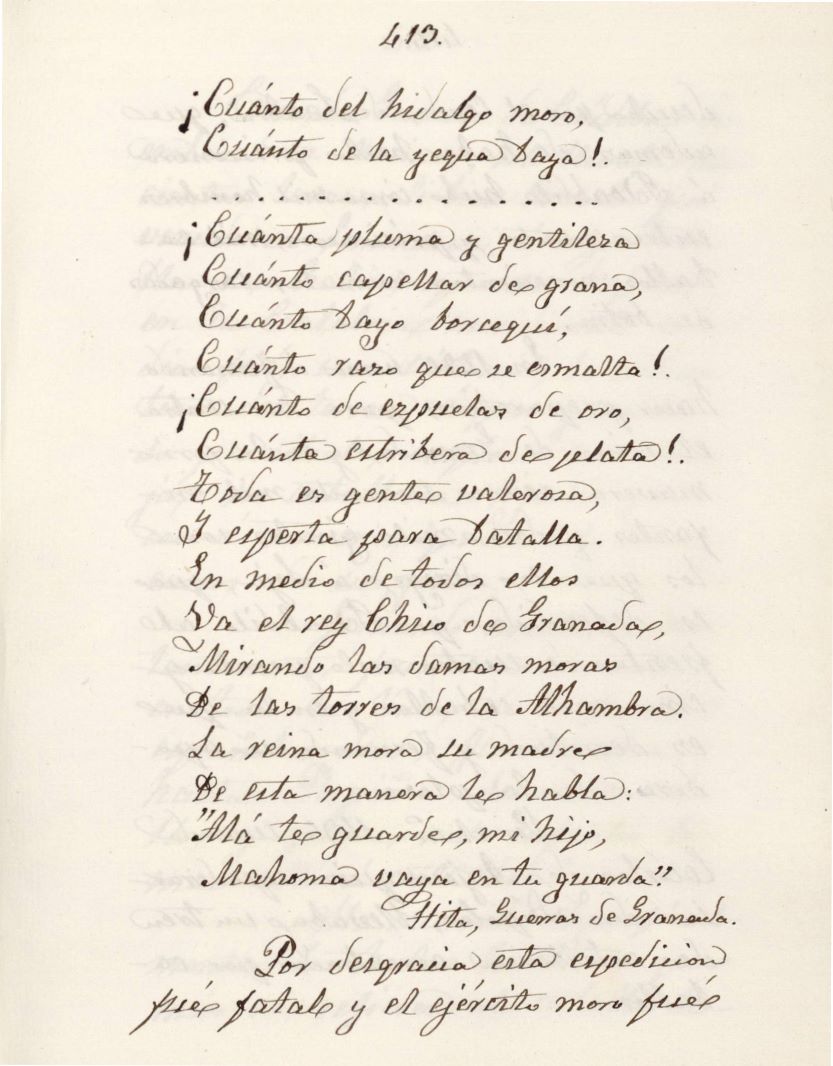 413.
¡Cuánto del hidalgo moro,
Cuánto de la yegua baya!.
. . . . . . . . . . . . . . . . . .
¡Cuánta pluma y gentileza
Cuánto capellar de grana,
Cuánto bayo borceguí,
Cuánto razo que se esmalta!.
¡Cuánto de espuelas de oro,
Cuánta estribera de plata!.
Toda es gente valerosa,
I esperta para batalla.
En medio de todos ellos
Va el rey Chico de Granada,
Mirando las damas moras
De las torres de la Alhambra.
La reina mora su madre
De esta manera le habla:
"Alá te guarde, mi hijo,
Mahoma vaya en tu guarda".
Hita, Guerras de Granada.
Por desgracia esta espedicion
fué fatal y el ejército moro fué